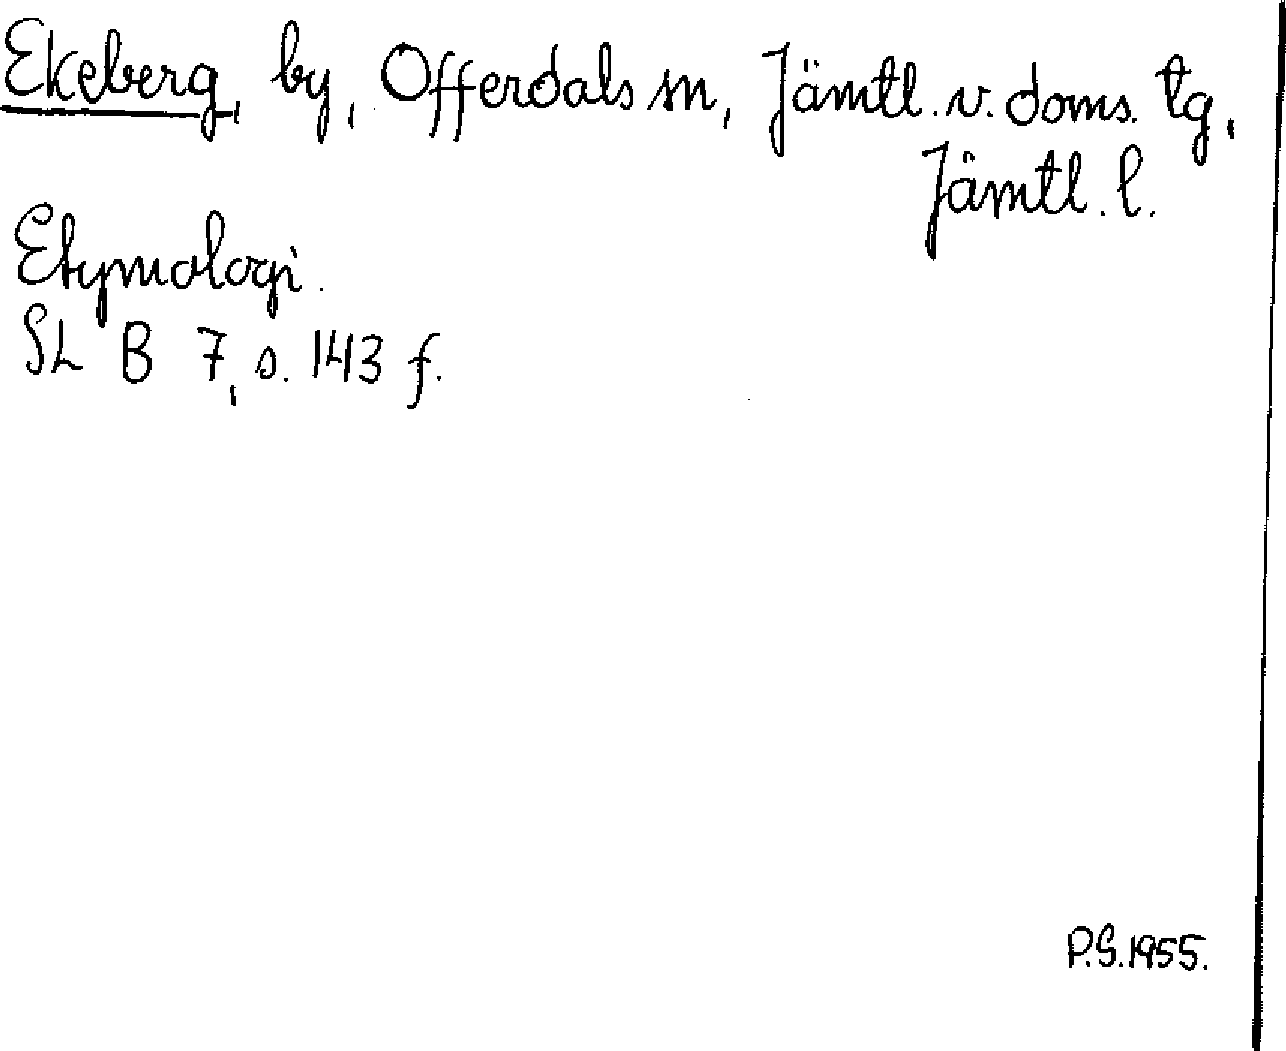 Ekeberg, by, Offerdals sn, Jämtl. v. doms. tg,
Jämtl. l.
Etymologi.
SL B 7, s. 143 f.
P.G. 1955.